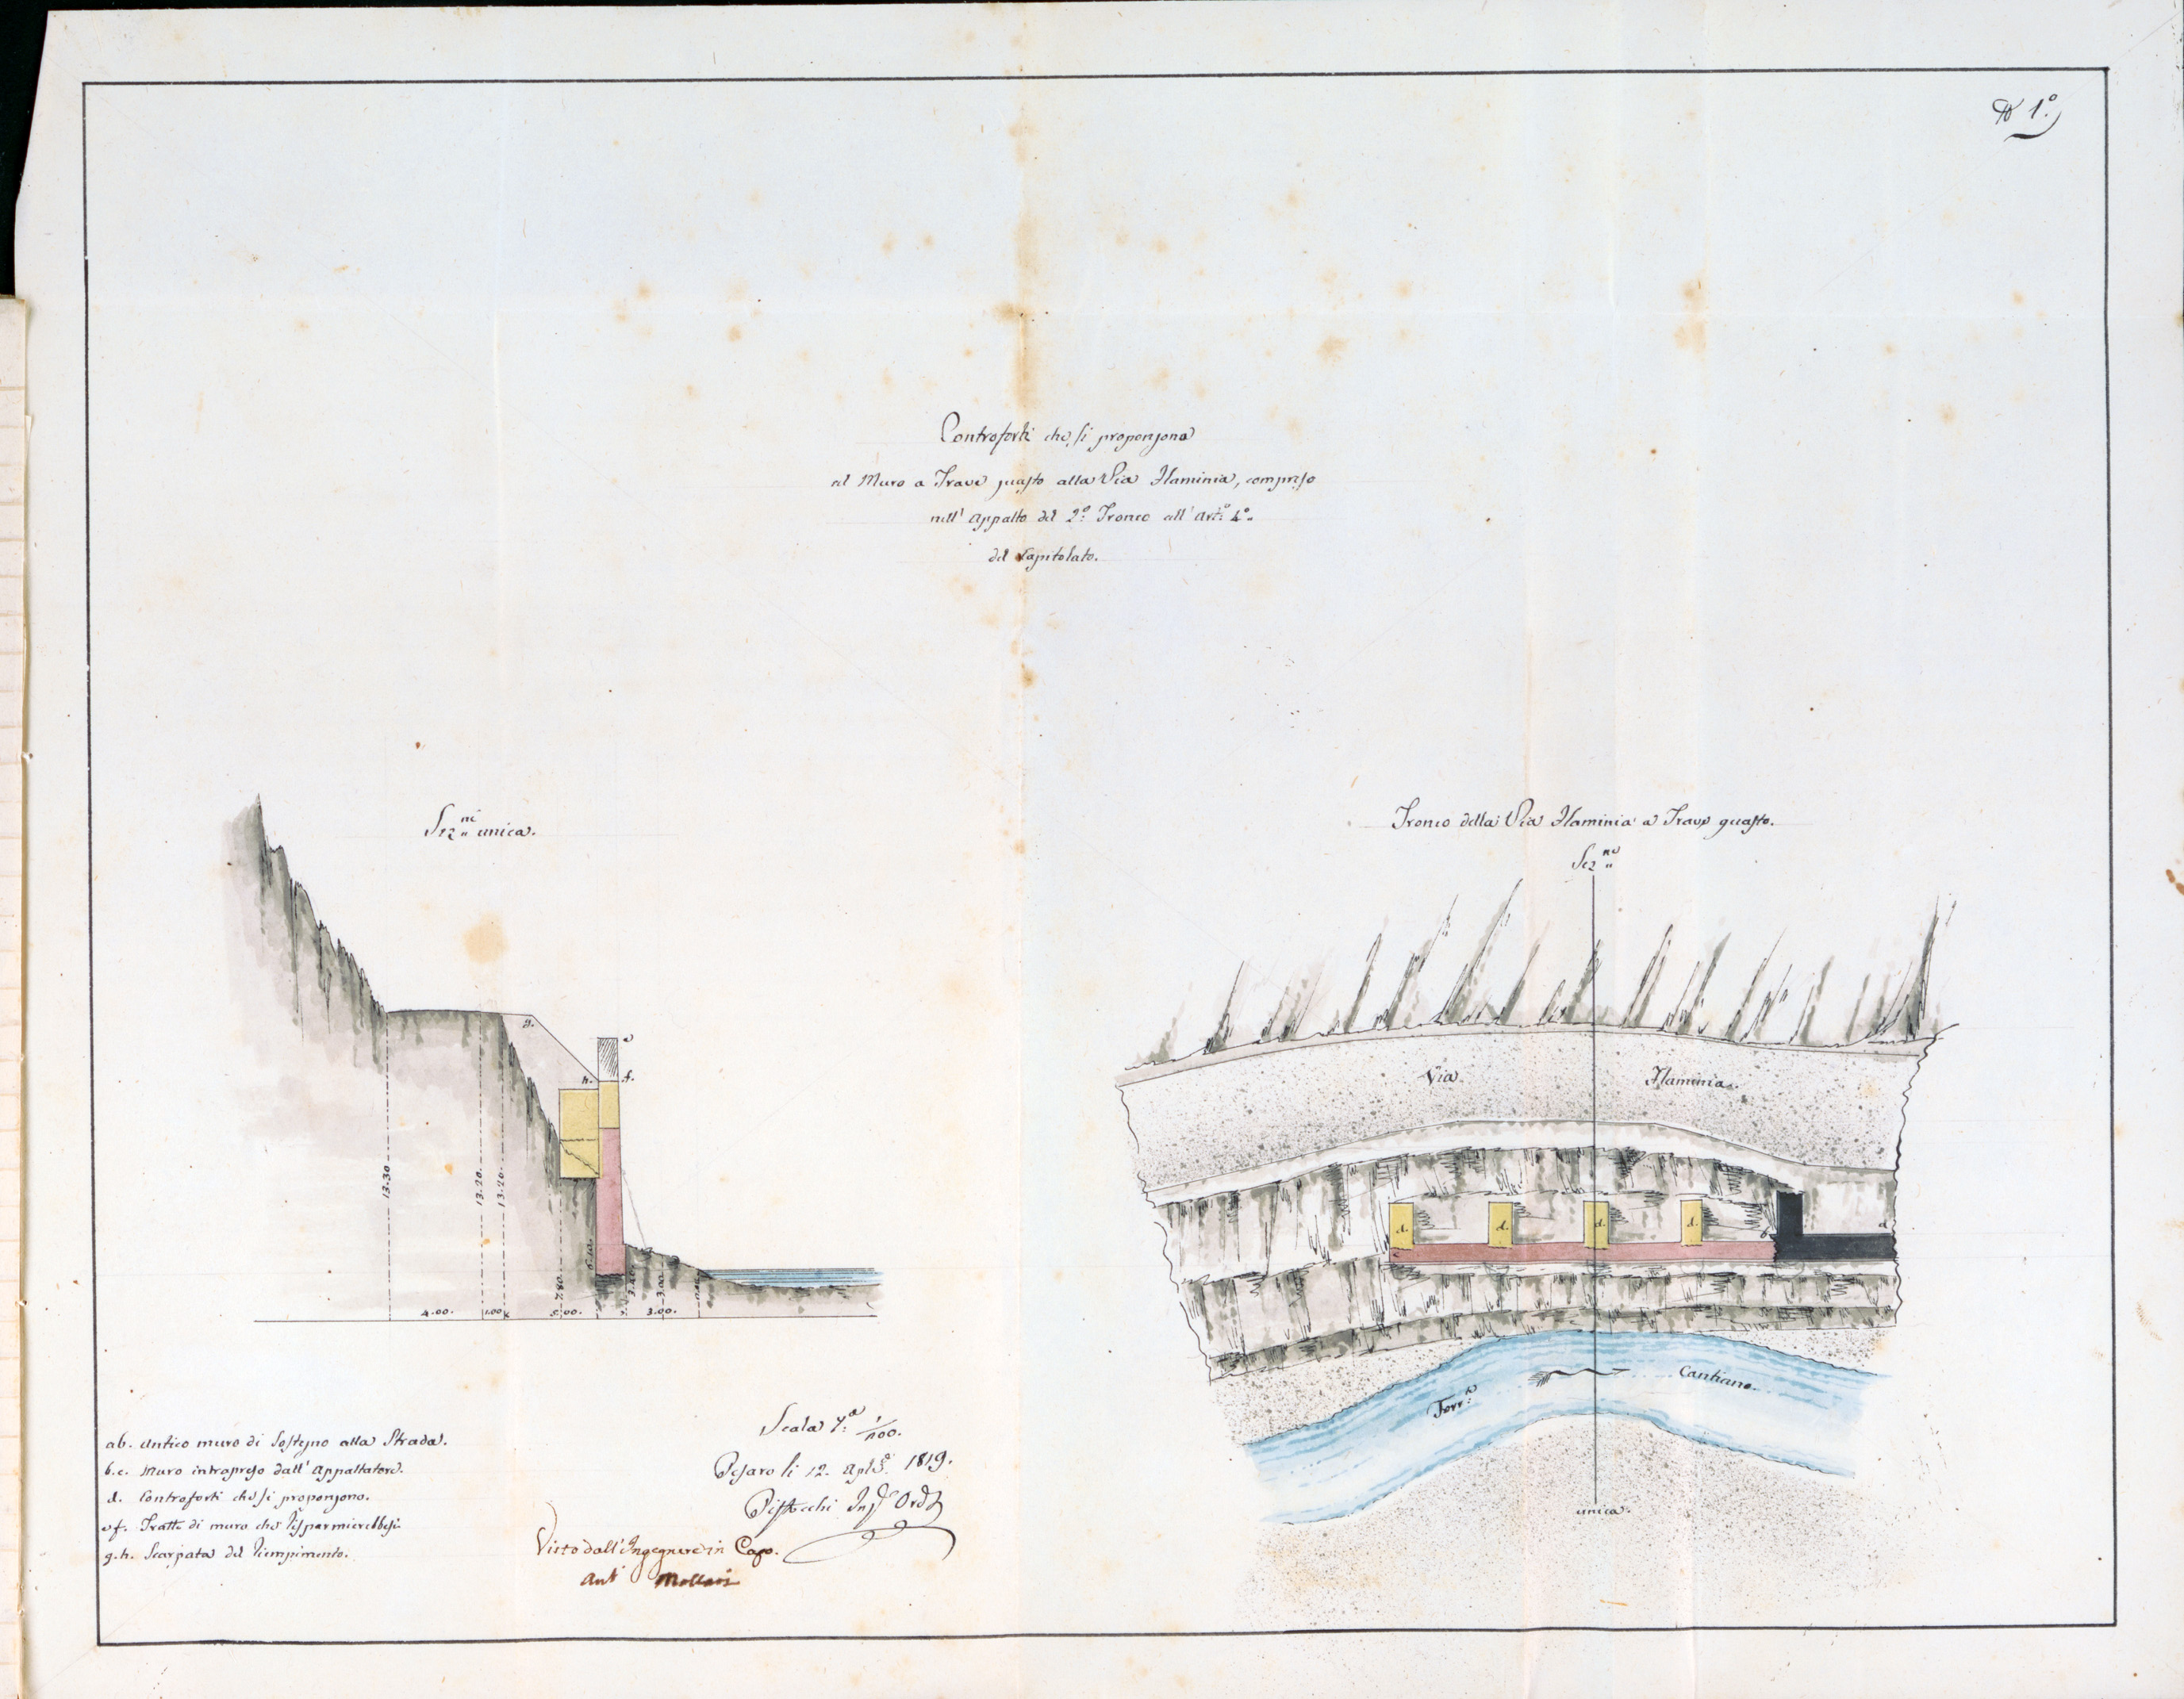 N 1.°
Controforti che si propongono
al Muro a Trave guasto alla Via Flaminia, compreso
nell' Appalto del 2.° Tronco all' Art.° 4.°
del Capitolato.
Sez.ne unica.
g.
e
h.
f.
13.30
13.20
13.20
7.80
6.10
3.40
3.00
4.00.
1.00
5.00.
3.00.
Tronco della Via Flaminia a Trave guasto.
Sez.ne
Via
Flaminia.
d.
d.
d.
d.
b
a
c
Torr.e
Cantiano.
unica.
ab. Antico muro di Sostegno alla Strada.
b.c. Muro intrapreso dall' Appaltatore.
d. Controforti che si propongono.
ef. Tratto di muro che risparmierebbesi.
g.h. Scarpata del Riempimento.
Scala 1/100.
Pesaro li 12. Aple 1819.
Pistocchi Ing.e Ord.o
Visto dall' Ingegnere in Capo.
Ant Mollari